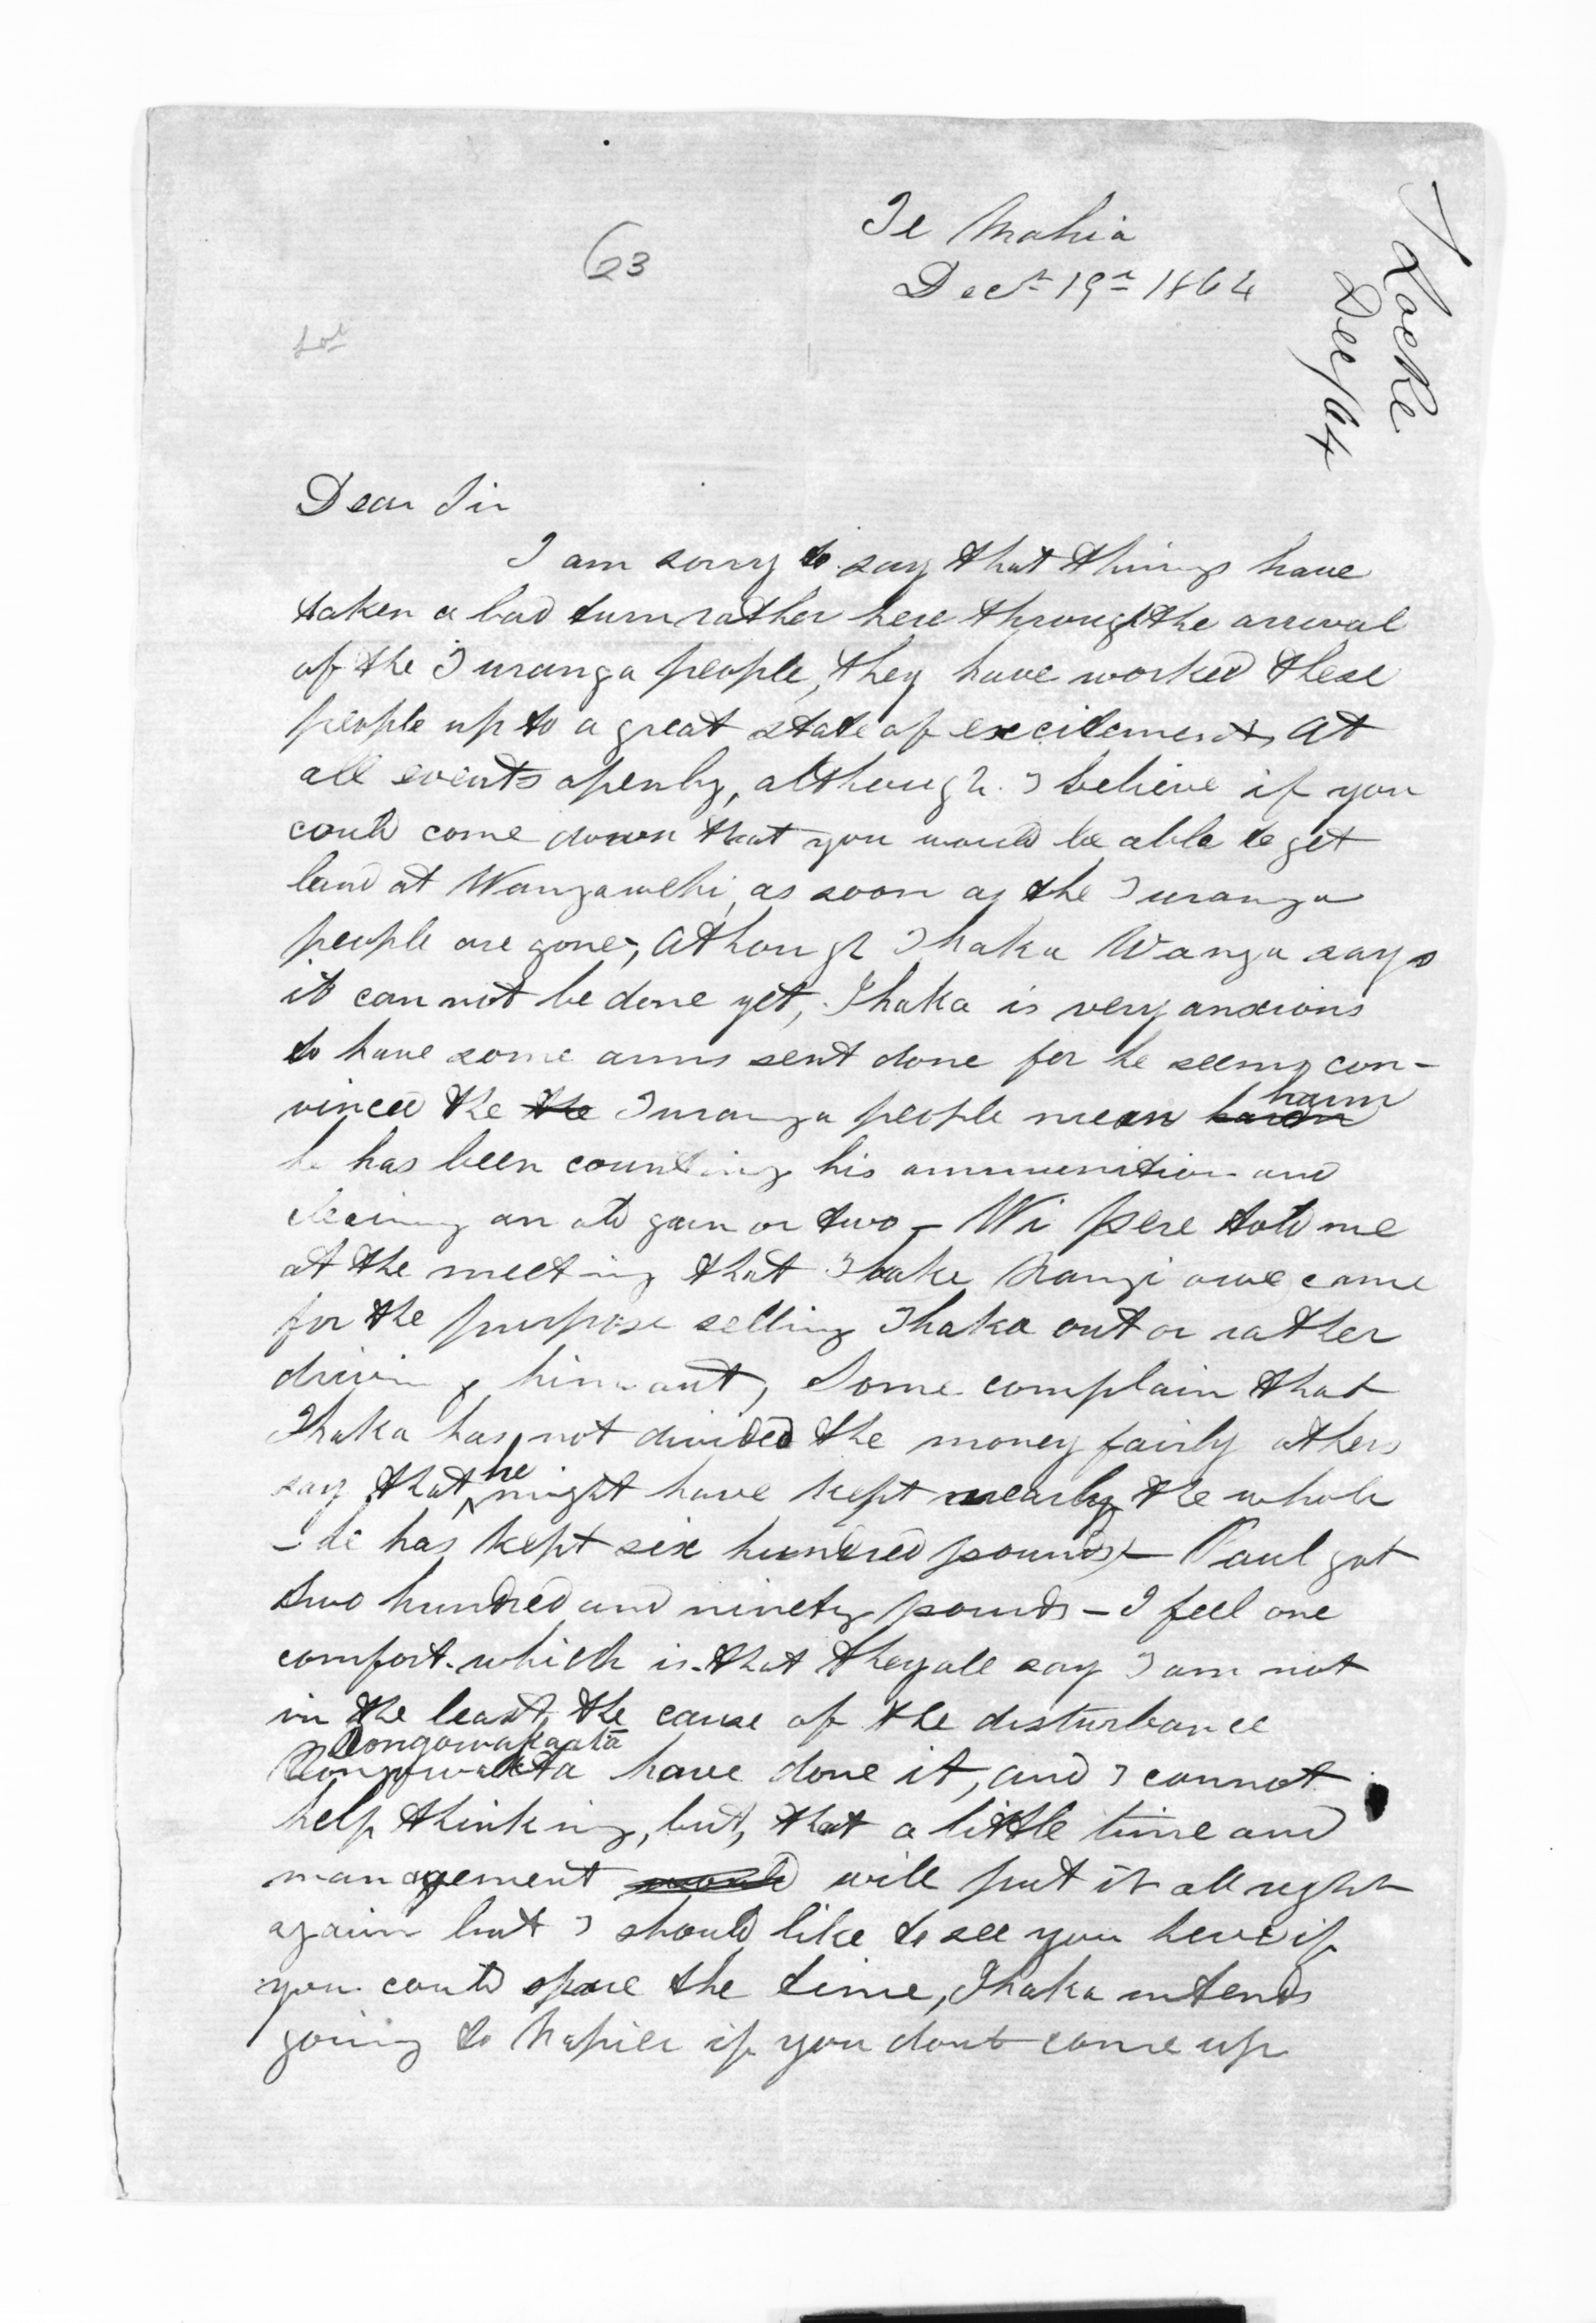 63
Te Mahia
Decr 19th 1864
Locke
Dec/64
Dear Sir
I am sorry to say that things have
taken a bad turn rather here through the arrival
of the Turanga people, they have worked these
people up to a great state of excitement, at
all events openly, although I believe if you
could come down that you would be able to get
land at Wangawehi, as soon as the Turanga
people are gone, Athough Ihaka Wanga says
it can not be done yet, Ihaka is very anxious
to have some arms sent done for he seems con-
vinced the the Turanga people mean harm
he has been counting his ammunition and
cleaning an old gun or two - Wi Pere told me
at the meeting that Rangi came
for the purpose selling Ihaka out or rather
driving him out, Some complain that
Ihaka has not divided the money fairly others
say that he might have kept nearly the whole
- he has kept six hundred pounds - Paul got
two hundred and ninety pounds - I feel one
comfort which is that they all say I am not
in the least the cause of the disturbance
Rongowakaata
Rongowakata have done it, and I cannot
help thinking, but, that a little time and
management would will put it all right
again but I should like to see you here if
you could spare the time, Ihaka intends
going to Napier if you dont come up